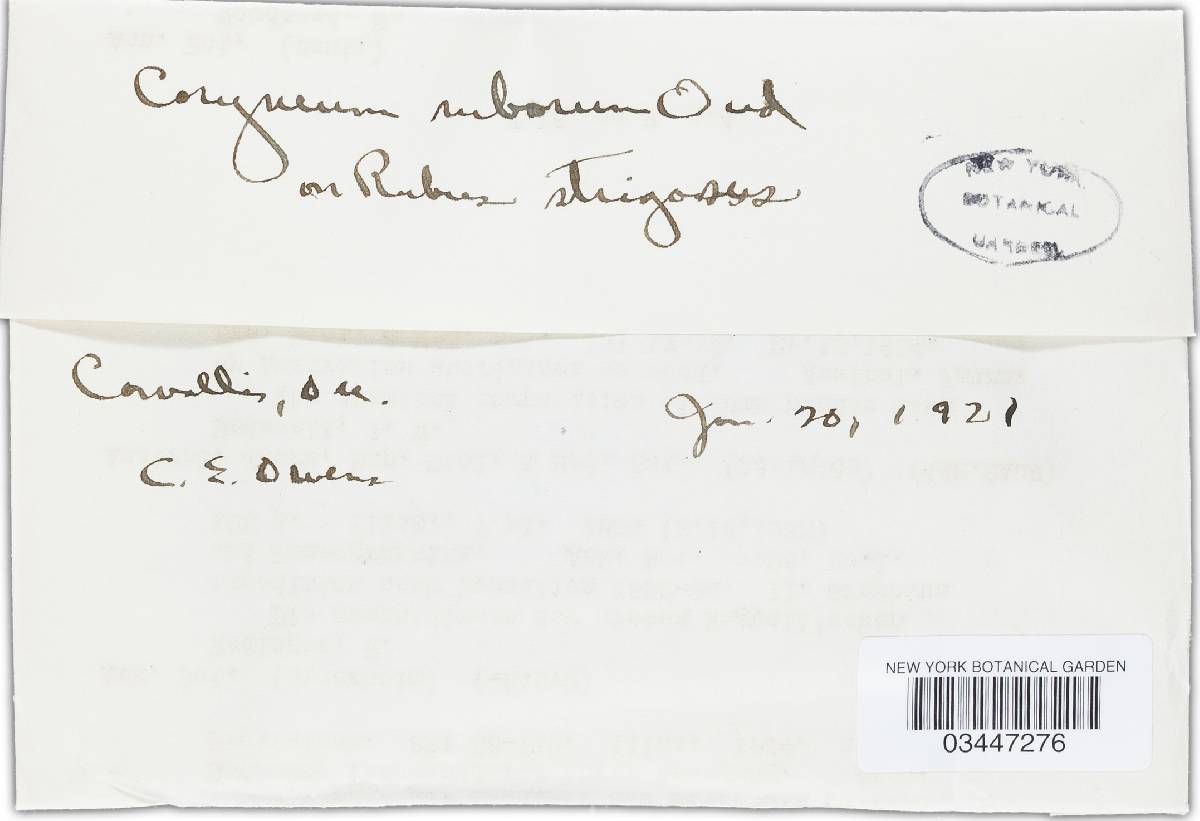 Coryneum ruborum Oud
on Rubus strigosus
NEW YORK
BOTANICAL
GARDEN
Corvallis, Ore.
Jan. 20, 1921
C. E. Owens
NEW YORK BOTANICAL GARDEN
03447276